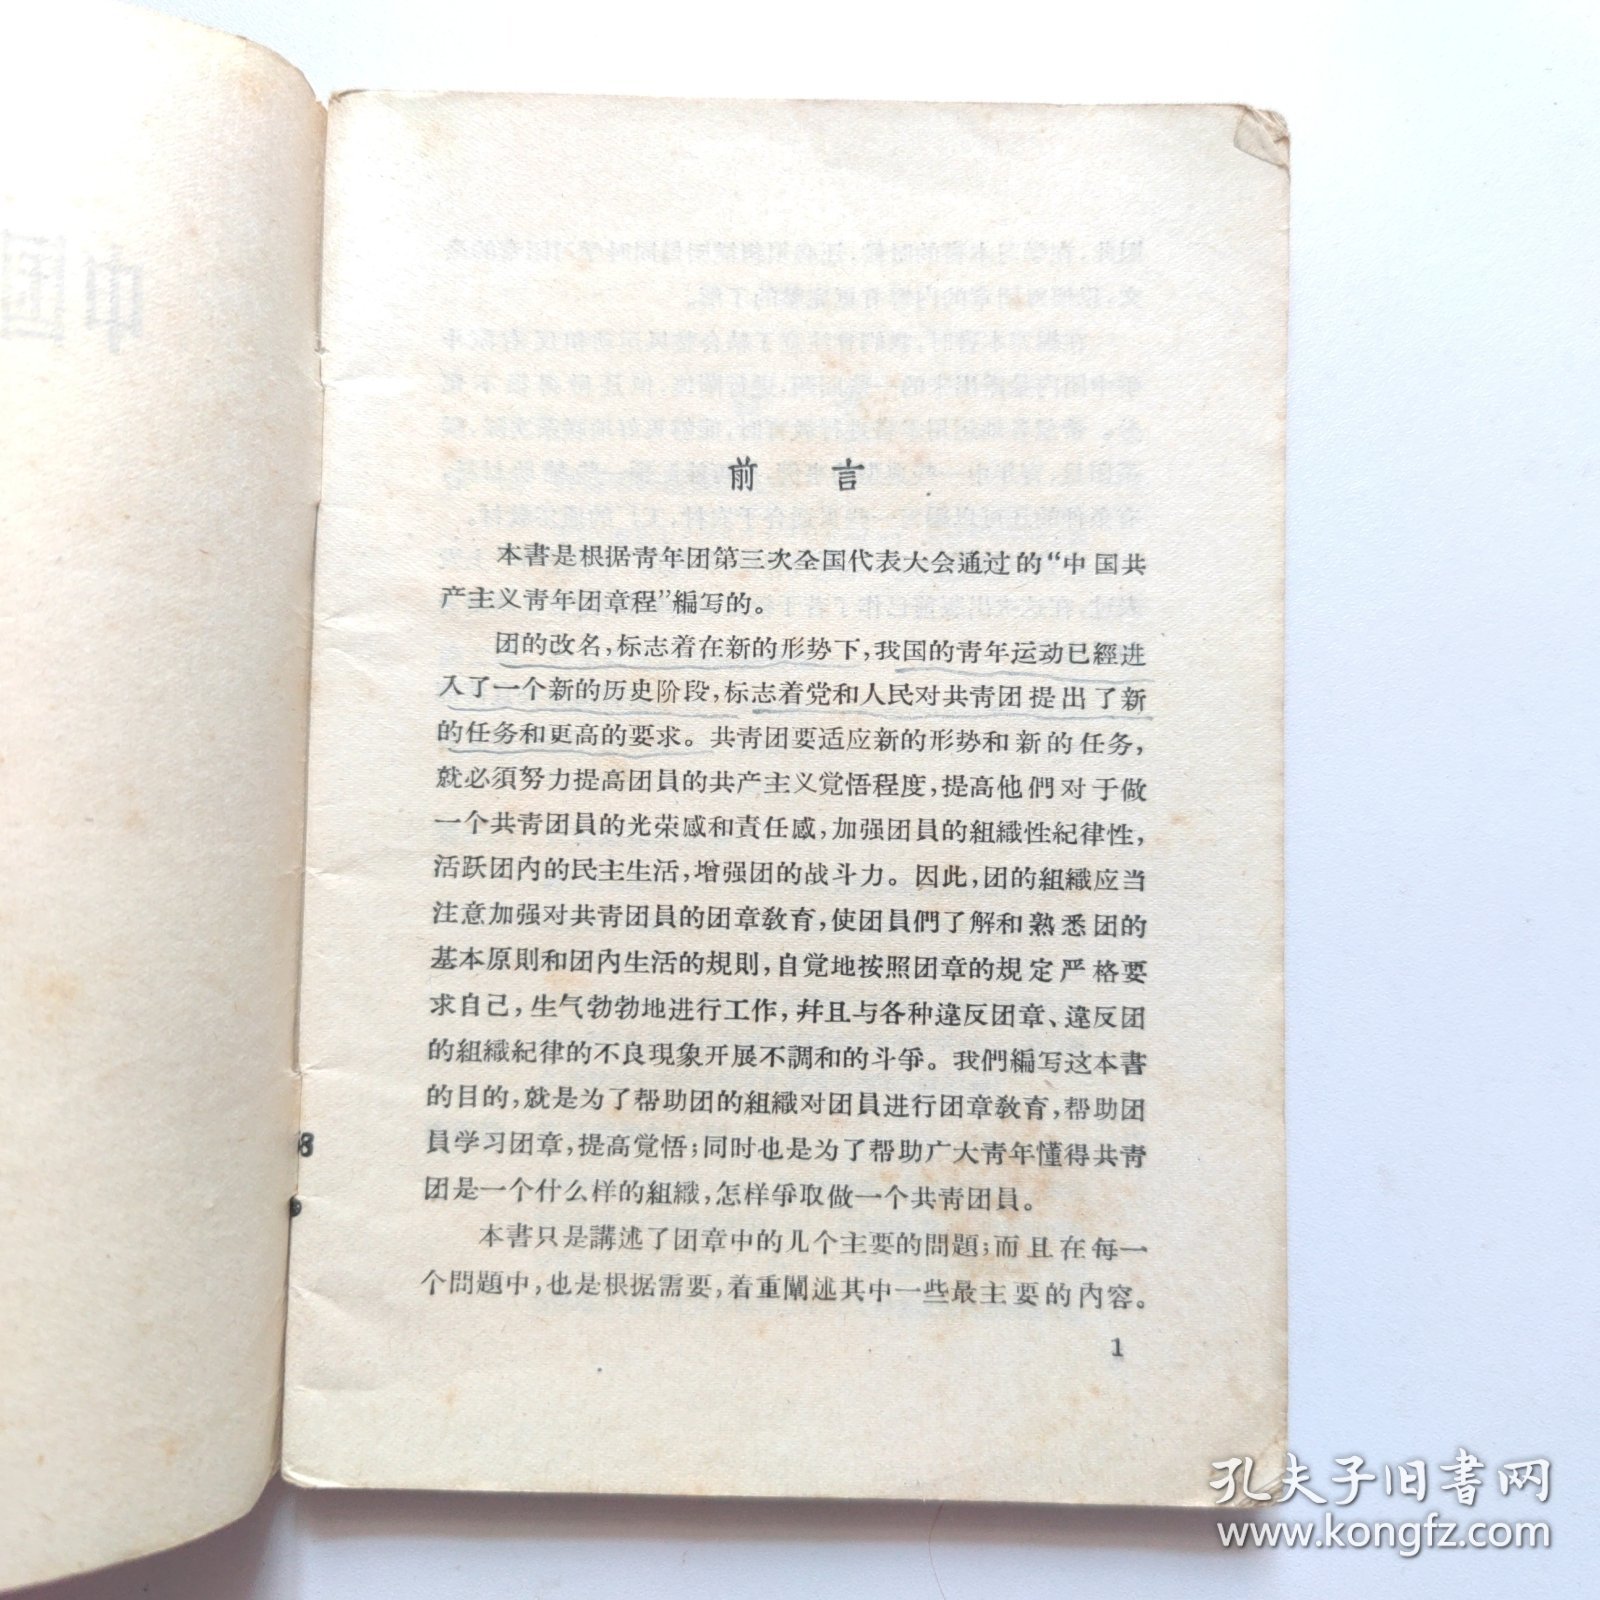 中国
前言
本書是根据青年团第三次全国代表大会通过的“中国共
产主义青年团章程”編写的。
团的改名,标志着在新的形势下,我国的青年运动已經进
入了一个新的历史阶段,标志着党和人民对共青团提出了新
的任务和更高的要求。共青团要适应新的形势和新的任务,
就必須努力提高团員的共产主义覚悟程度,提高他們对于做
一个共青团員的光荣感和責任感,加强团員的組織性紀律性,
活跃团内的民主生活,增强团的战斗力。因此,团的組織应当
注意加强对共青团員的团章教育,使团員們了解和熟悉团的
基本原則和团内生活的規則,自覚地按照团章的規定严格要
求自己,生气勃勃地进行工作,并且与各种違反团章、違反团
的組織紀律的不良現象开展不調和的斗爭。我們編写这本書
的目的,就是为了帮助团的組織对团員进行团章教育,帮助团
員学习团章,提高覚悟;同时也是为了帮助广大青年懂得共青
团是一个什么样的組織,怎样爭取做一个共青团員。
本書只是講述了团章中的几个主要的問題;而且在每一
个問題中,也是根据需要,着重闡述其中一些最主要的內容。
1
8
孔夫子旧書网
www.kongfz.com